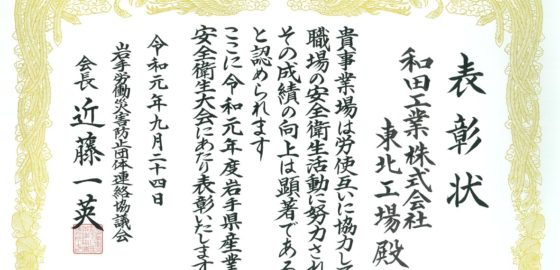 表彰状
和田工業株式会社
東北工場殿
貴事業場は労使互いに協力して
職場の安全衛生活動に努力され
その成績の向上は顕著である
と認められます
ここに令和元年度岩手県産業
安全衛生大会にあたり表彰いたします
令和元年九月二十四日
岩手労働災害防止団体連絡協議会
会長 近藤一英